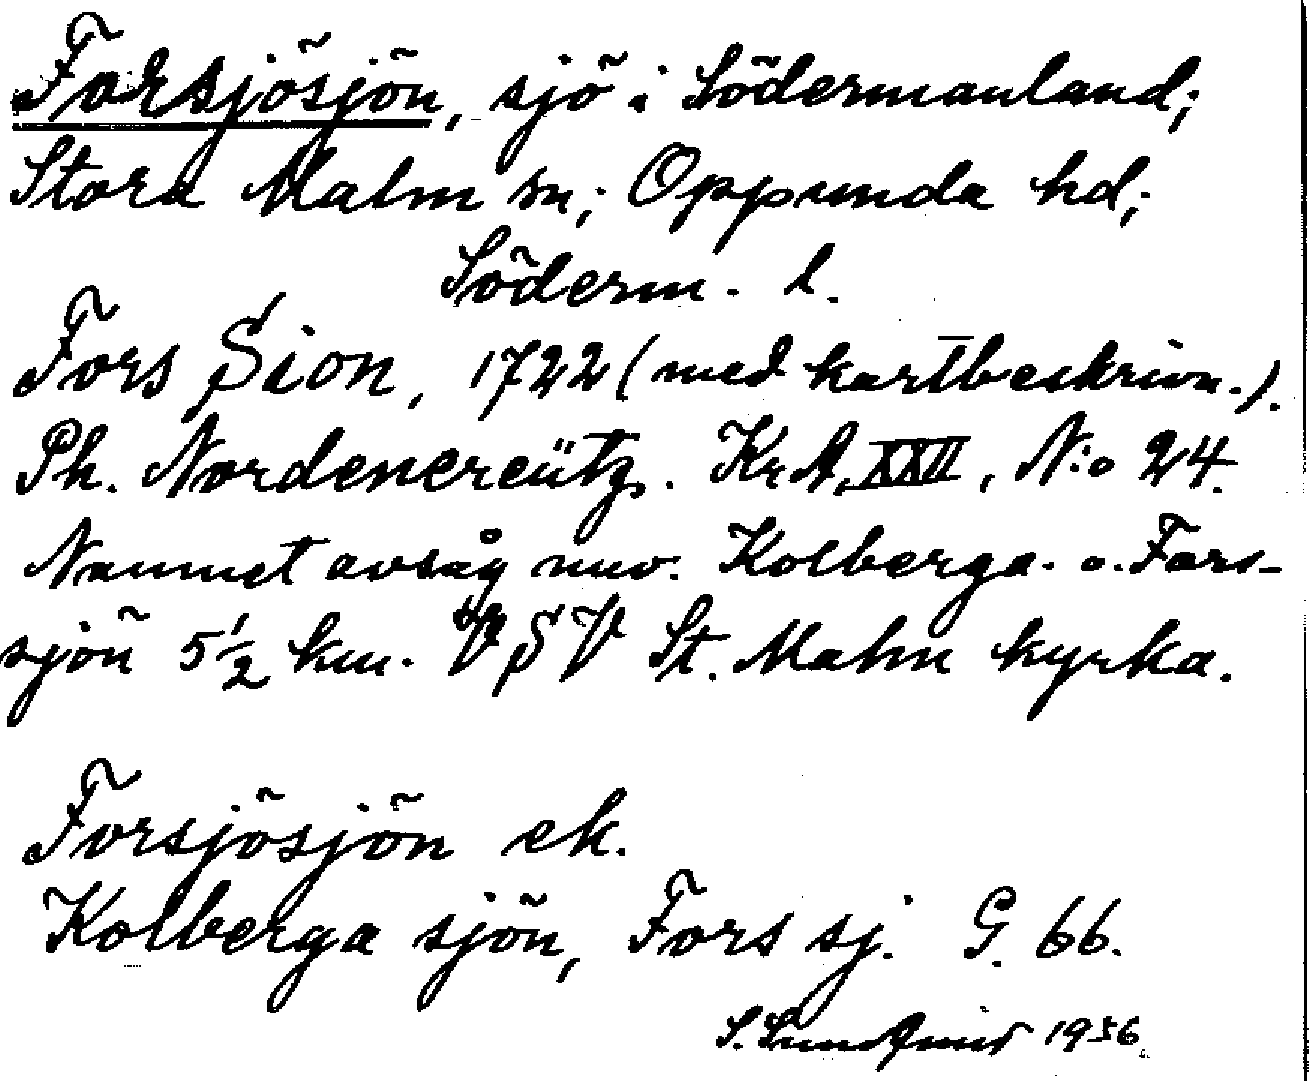 Forsjösjön, sjö i Södermanland;
Stora Malm sn; Oppunda hd;
Söderm. l.
Fors Sion, 1722 (med kartbeskrivn.).
Ph. Nordenereütz. KrA, XXII, N:o 24.
Namnet avsåg nuv. Kolberga- o. Fors-
sjön 5 1/2 km. VSV St. Malm kyrka.
Forsjösjön ek.
Kolberga sjön, Fors sj. G. 66.
S. Lundqvist 1936